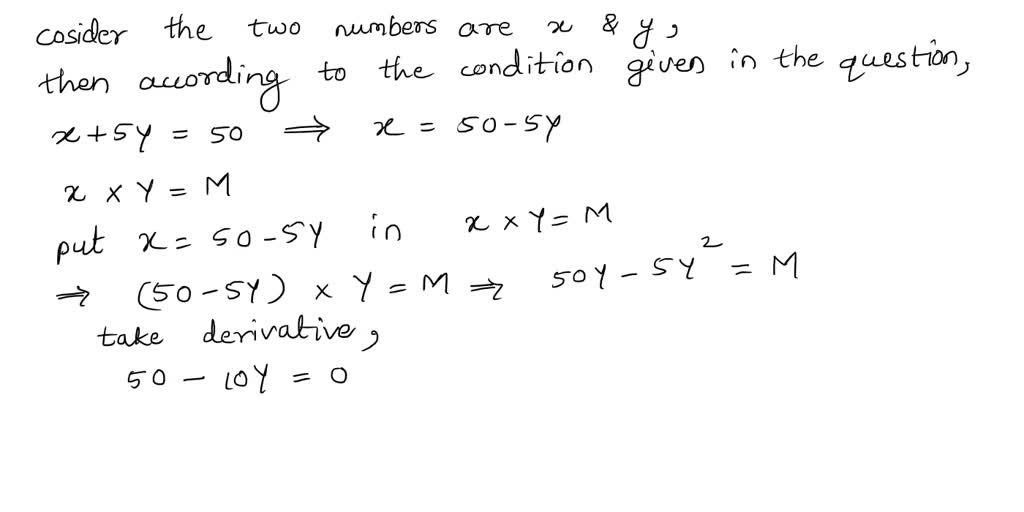 cosider the two numbers are x & y,
then according to the condition given in the question,
x + 5Y = 50 ⇒ x = 50 - 5Y
x × Y = M
put x = 50 - 5Y in x × Y = M
⇒ (50 - 5Y) × Y = M ⇒ 50Y - 5Y² = M
take derivative,
50 - 10Y = 0